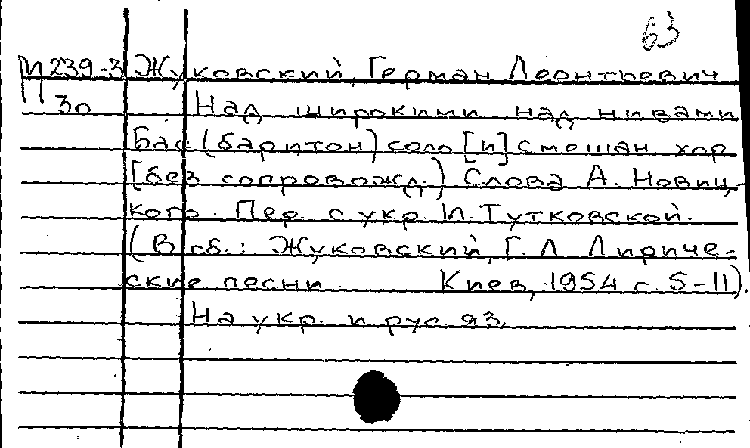 63
М 239-3 Жуковский, Герман Леонтьевич
30 Над широкими над нивами
Бас (баритон) соло [и] смешан хор
[без сопровожд.] Слова А. Новиц-
кого. Пер. с укр. И. Тутковской.
(В сб.: Жуковский, Г. Л. Лириче-
ские песни Киев, 1954 с. 5-11).
На укр. и рус яз.